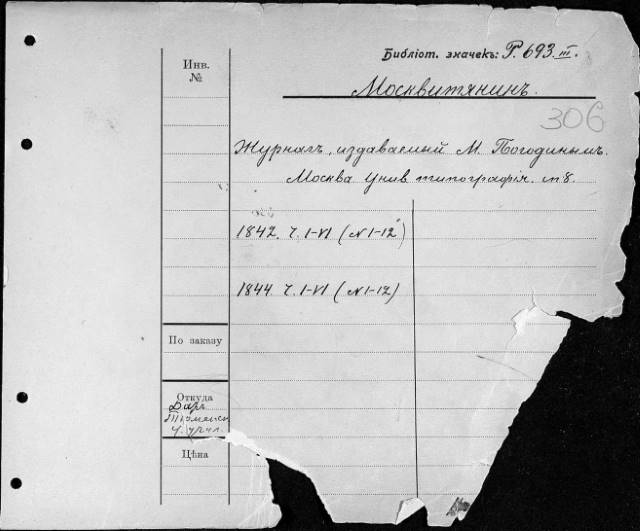 Библіот. значекъ: Р. 693. III.
Инв.
№
Москвитянинъ.
306
Журналъ, издаваемый М. Погодинымъ.
Москва Унив. типографія. in 8.
1842. Ч. I-VI (N 1-12)
1844. Ч. I-VI (N 1-12)
По заказу
Откуда
Даръ
Цѣна